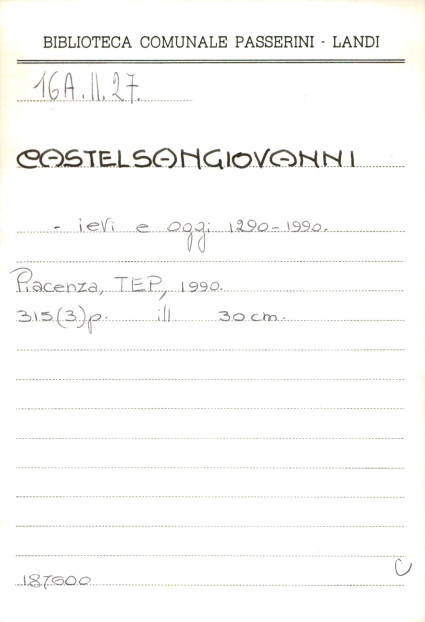 BIBLIOTECA COMUNALE PASSERINI - LANDI
16A.II.27.
CASTELSANGIOVANNI
- ieri e oggi 1290-1990.
Piacenza, TEP, 1990.
315(3)p. ill 30cm.
C
187600